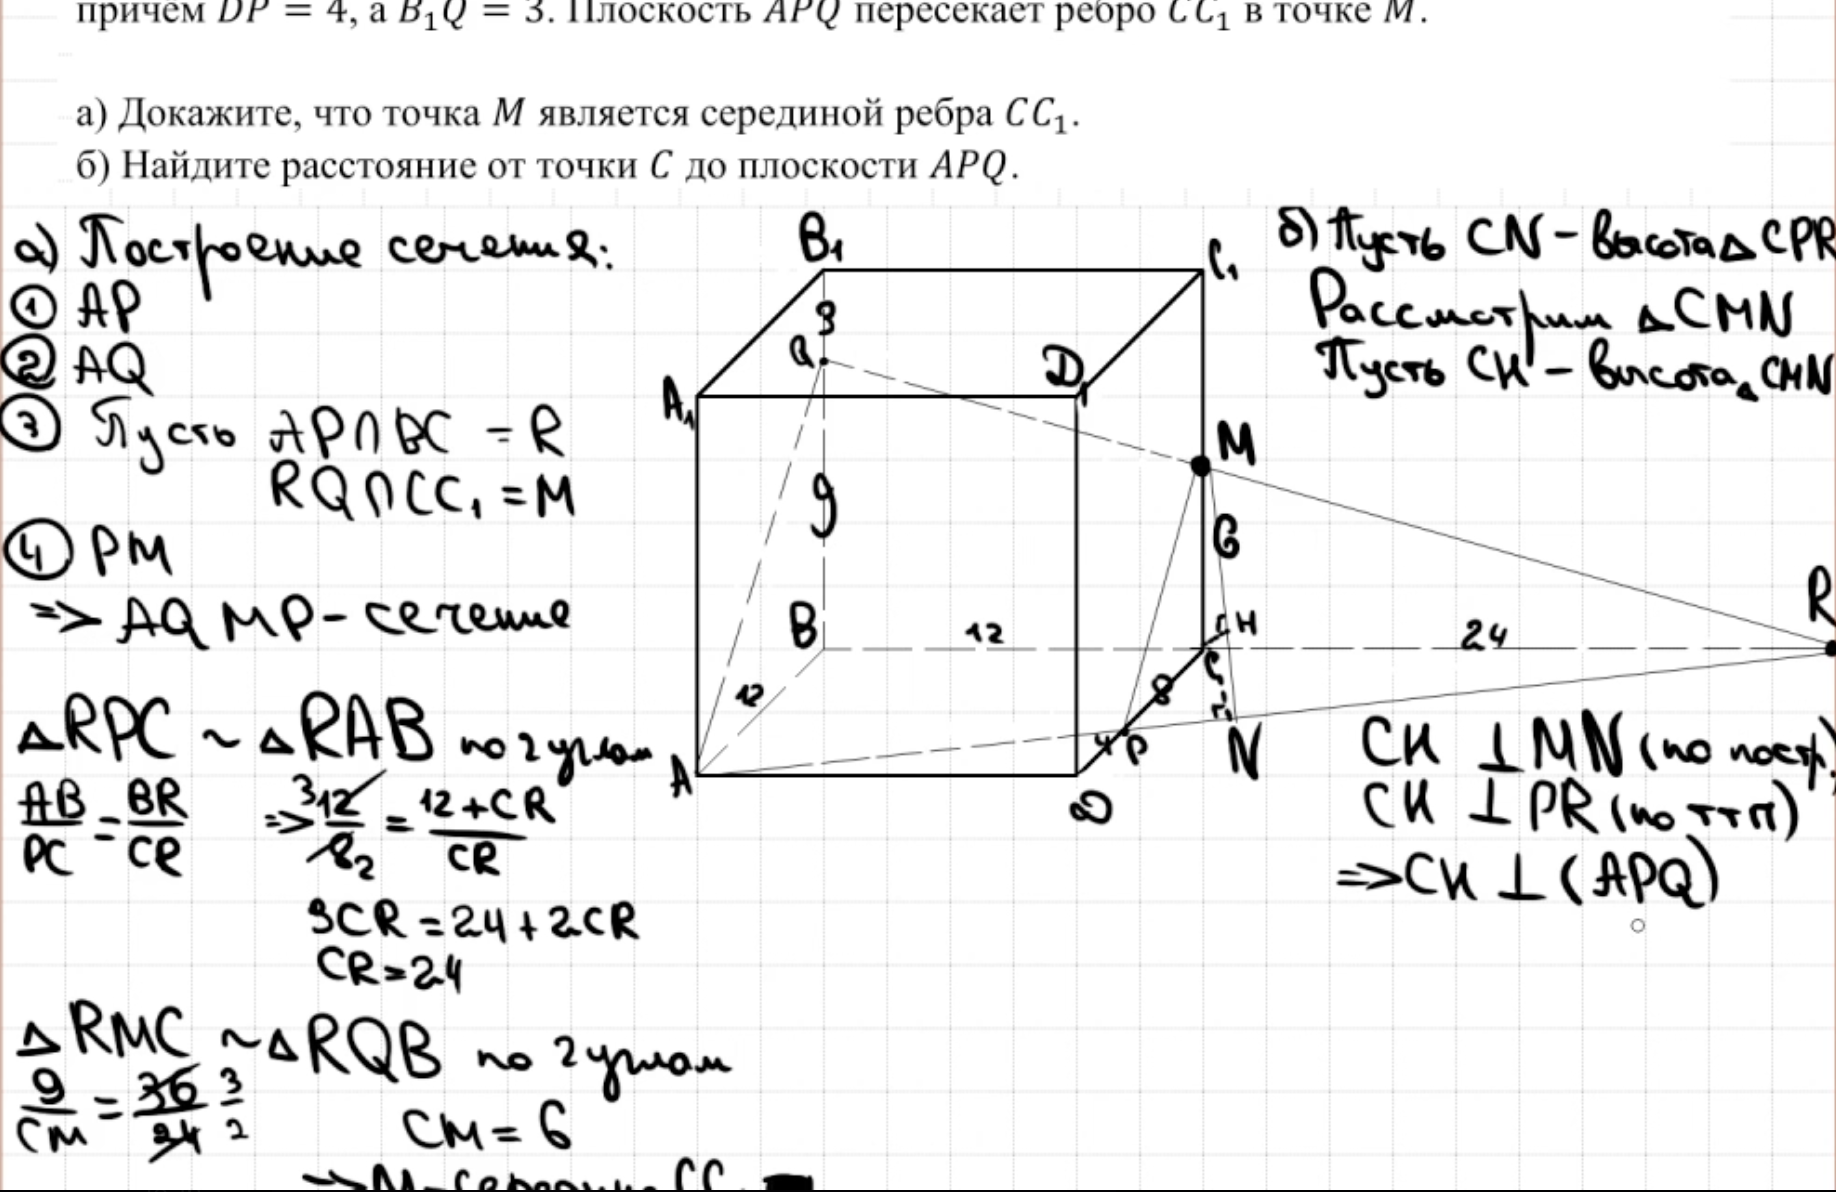 причём DP = 4, а B₁Q = 3. Плоскость APQ пересекает ребро CC₁ в точке M.
а) Докажите, что точка M является серединой ребра CC₁.
б) Найдите расстояние от точки C до плоскости APQ.
а) Построение сечения:
① AP
② AQ
③ Пусть AP∩BC = R
RQ∩CC₁ = M
④ PM
=> AQMP - сечение
△RPC ~ △RAB по 2 углам
AB/PC = BR/CR => 12/8 = (12+CR)/CR
3
2
3CR = 24 + 2CR
CR = 24
△RMC ~ △RQB по 2 углам
9/CM = 36/24 3/2
CM = 6
=> M - середина CC₁
B₁
C₁
3
Q
D₁
A₁
M
9
6
R
B
12
H
24
12
C
8
4
P
N
A
D
б) Пусть CN - высота △CPR
Рассмотрим △CMN
Пусть CH - высота △CMN
CH ⊥ MN (по постр)
CH ⊥ PR (по ттп)
=> CH ⊥ (APQ)